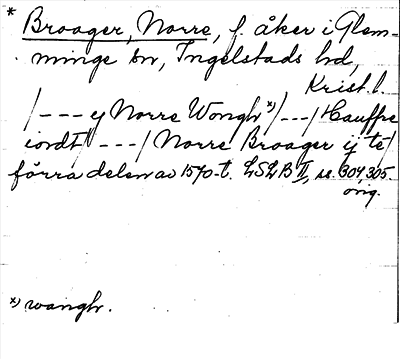 * Broager, Norre, f. åker i Glem-
minge sn, Ingelstads hd,
Krist. l.
/--- y Norre Wongh*)/---/ Hauffre
iordt /---/ Norre Broager ij te/
förra delen av 1570-t. LSLB II, ss. 304, 305
orig.
*) wanghr.